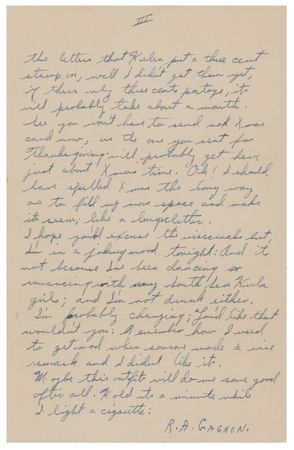 III
the letters that Keila put a three cent
stamp on, well I didn't get them yet,
if theres only three cents postage, it
will probably take about a month.
You won't have to send not Xmas
card now, as the one you sent for
Thanksgiving will probably get here
just about Xmas time. Oh! I should
have spelled Xmas the long way
as to fill up more space and make
it seem, like a longer letter.
I hope you'll excuse the wisecracks but,
I'm in a joking mood tonight: And it
not because I've been dancing or
romancing with any South Sea
girls; and I'm not drunk either.
I'm probably changing; You'd like that
wouldn't you: Remember how I used
to get mad when someone made a wise
remark and I didn't like it.
Maybe this outfit will do me some good
after all. Hold it a minute while
I light a cigarette:
R.A. GAGNON.